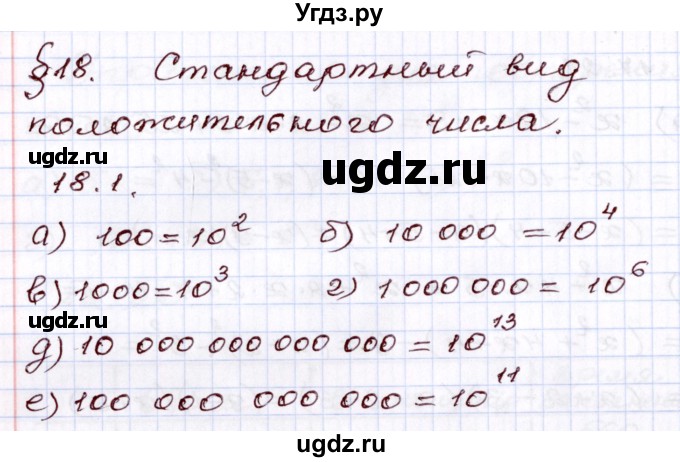 Угдз.ру
§18. Стандартный вид
положительного числа.
ugdz.ru
ugdz.ru
18.1.
а) 100 = 10² б) 10 000 = 10⁴
в) 1000 = 10³ г) 1 000 000 = 10⁶
ugdz.ru
ugdz.ru
д) 10 000 000 000 000 = 10¹³
е) 100 000 000 000 = 10¹¹
ugdz.ru